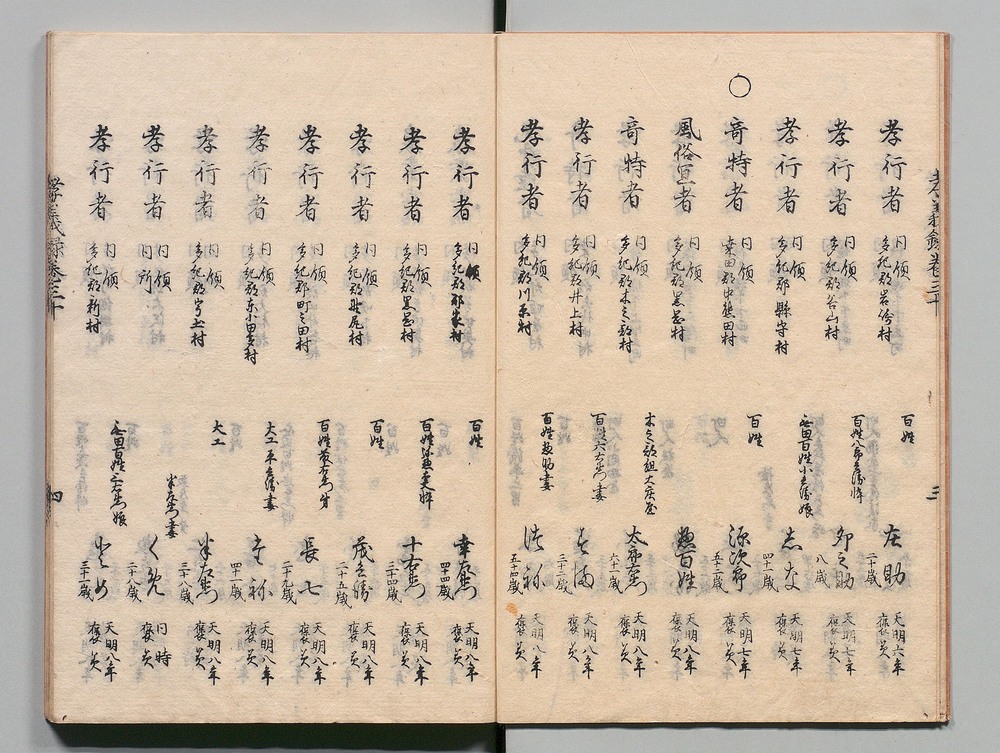 孝義録巻三十
孝行者
同領
多紀郡岩谷村
百姓
庄助
二十歳
天明六年
褒美
孝行者
同領
多紀郡谷山村
百姓八郎兵衛忰
卯之助
八歳
天明七年
褒美
孝行者
同領
多紀郡縣守村
百姓小兵衛娘
志な
四十一歳
天明七年
褒美
○
奇特者
同領
桑田郡中熊田村
百姓
源次郎
五十二歳
天明七年
褒美
風俗宜者
同領
多紀郡黒岡村
惣百姓
天明八年
褒美
奇特者
同領
多紀郡木之部村
木之部組大庄屋
太郎右衛門
六十一歳
天明八年
褒美
孝行者
同領
多紀郡井上村
百姓六右衛門妻
三十二歳
天明八年
褒美
孝行者
同領
多紀郡川原村
百姓
妻
五十四歳
天明八年
褒美
三
孝行者
同領
多紀郡郡家村
百姓
幸右衛門
四十四歳
天明八年
褒美
孝行者
同領
多紀郡黒岡村
百姓
忰
十右衛門
三十四歳
天明八年
褒美
孝行者
同領
多紀郡野尻村
百姓
茂兵衛
二十九歳
天明八年
褒美
孝行者
同領
多紀郡町之田村
百姓
長七
二十九歳
天明八年
褒美
孝行者
同領
多紀郡東小里村
大工平兵衛妻
四十一歳
天明八年
褒美
孝行者
同領
多紀郡宇土村
大工
半右衛門
三十八歳
天明八年
褒美
孝行者
同領
同所
半右衛門妻
くめ
二十八歳
同時
褒美
孝行者
同領
多紀郡新村
娘
とめ
三十一歳
天明八年
褒美
孝義録巻三十
四